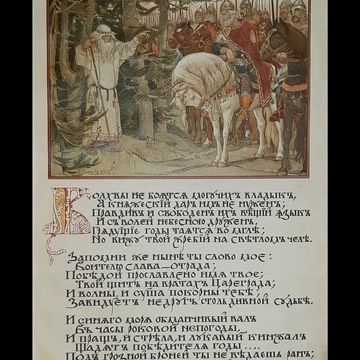 Волхвы не боятся могучихъ владыкъ,
А княжескій даръ имъ не нуженъ;
Правдивъ и свободенъ ихъ вѣщій языкъ
И съ волей небесною друженъ.
Грядущіе годы таятся во мглѣ;
Но вижу твой жребій на свѣтломъ челѣ.
Запомни же нынѣ ты слово мое:
Воителю слава – отрада;
Побѣдой прославлено имя твое;
Твой щитъ на вратахъ Цареграда;
И волны, и суша покорны тебѣ;
Завидуетъ недругъ столь дивной судьбѣ.
И синяго моря обманчивый валъ
Въ часы роковой непогоды,
И пращъ, и стрѣла, и лукавый кинжалъ
Щадятъ побѣдителя годы....
Подъ грозной броней ты не вѣдаешь ранъ;